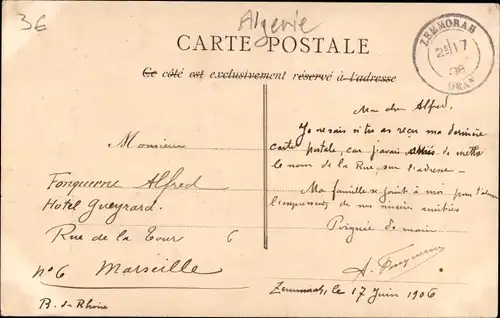 3€
Algérie
CARTE POSTALE
Ce côté est exclusivement réservé à l'adresse
ZEMMORAH
17
06
ORAN
Mon cher Alfred,
Je ne sais si tu as reçu ma dernière
carte postale, car j'avais de mettre
le nom de la Rue, sur l'adresse.
Ma famille se joint à moi pour t'adresser
de nos amitiés
Poignée de main
Monsieur
Alfred
Hotel Gueyrard.
Rue de la Tour 6
n° 6 Marseille
B. du Rhône
A.
le 17 Juin 1906